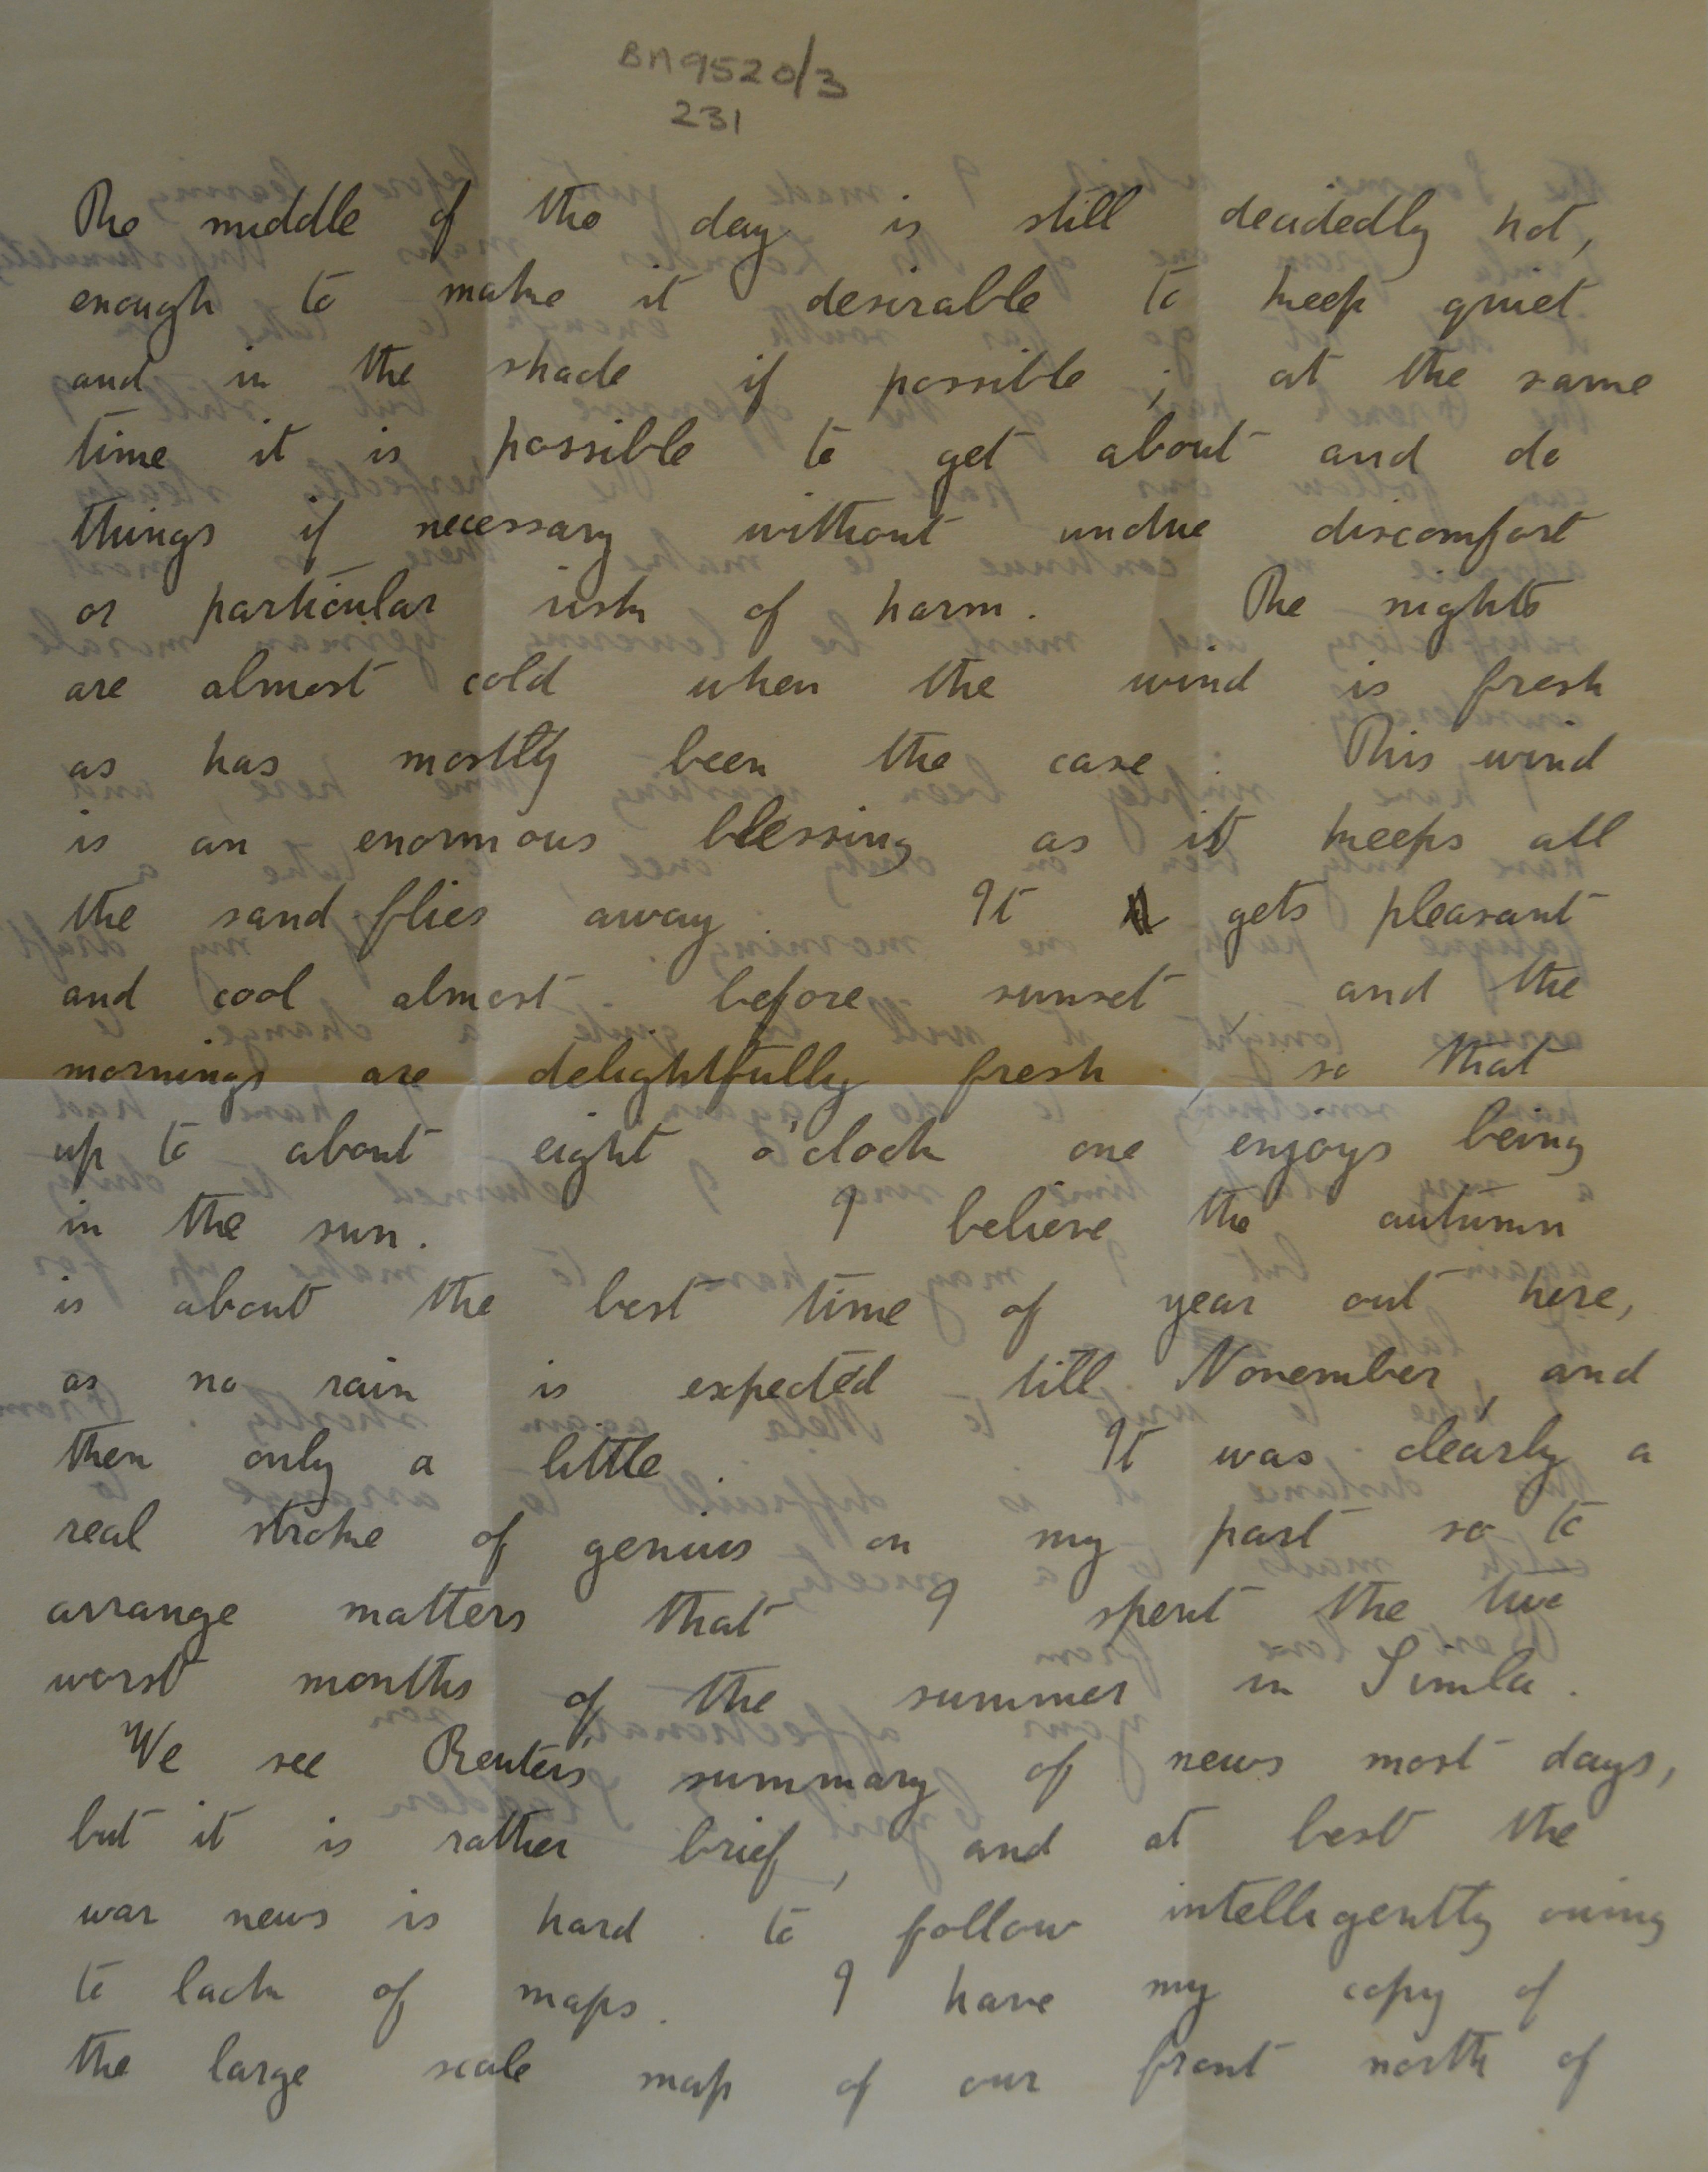 BA9520/3
231
The middle of the day is still decidedly hot,
enough to make it desirable to keep quiet
and in the shade if possible ; at the same
time it is possible to get about and do
things if necessary without undue discomfort
or particular risk of harm. The nights
are almost cold when the wind is fresh
as has mostly been the case. This wind
is an enormous blessing as it keeps all
the sand flies away. It gets pleasant
and cool almost before sunset, and the
mornings are delightfully fresh, so that
up to about eight o'clock one enjoys being
in the sun. I believe the autumn
is about the best time of year out here,
as no rain is expected till November, and
then only a little. It was clearly a
real stroke of genius on my part so to
arrange matters that I spent the two
worst months of the summer in Simla.
We see Reuter's summary of news most days,
but it is rather brief, and at best the
war news is hard to follow intelligently owing
to lack of maps. I have my copy of
the large scale map of our front north of